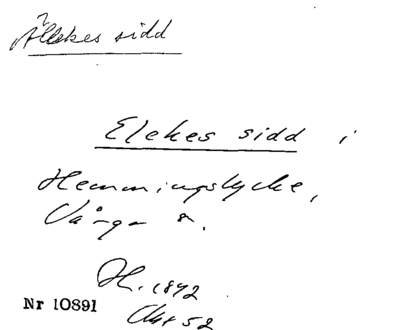 Ällekes sidd
Elekes sidd i
Hemmingslycke,
Vånga s.
H. 1892
Nr 10891